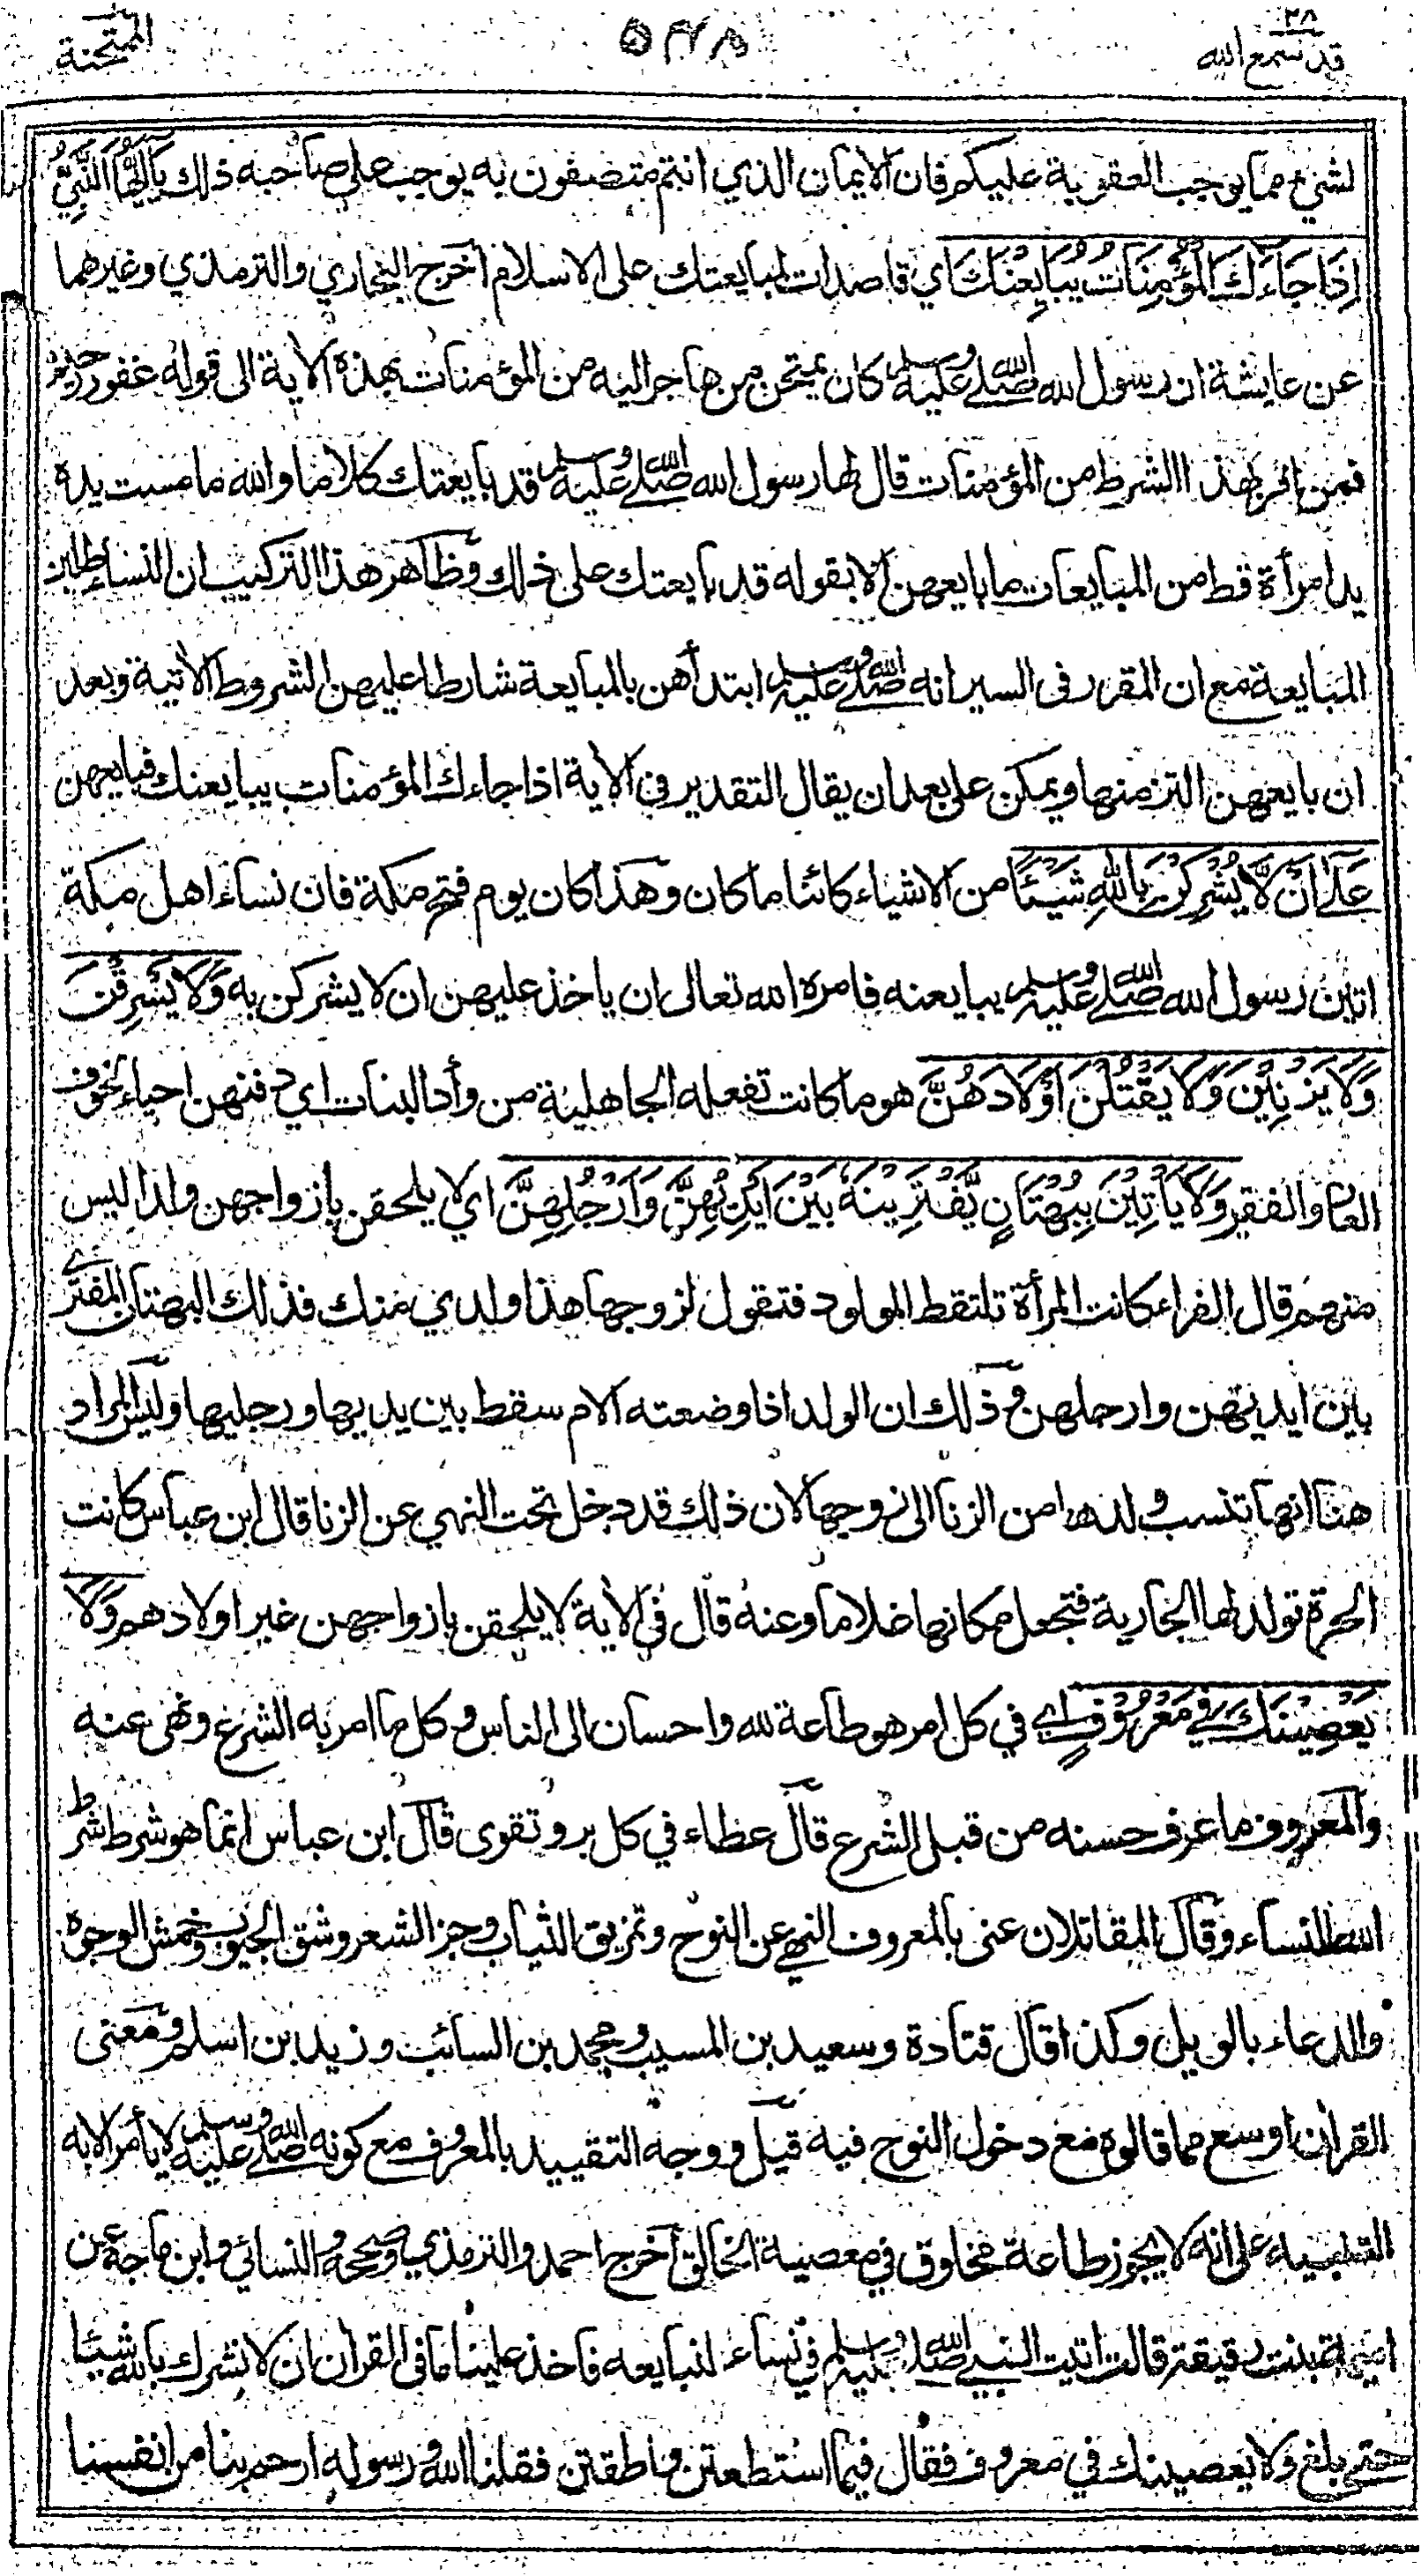 ٢٨
قد سمع الله
٥٤٨
الممتحنة
لشيء مما يوجب العقوبة عليكم فان الايمان الذي انتم متصفون به يوجب على صاحبه ذلك يَآأَيُّهَا النَّبِيُّ
إِذَا جَآءَكَ الْمُؤْمِنَاتُ يُبَايِعْنَكَ اي قاصدات لمبايعتك على الاسلام أخرج البخاري والترمذي وغيرهما
عن عايشة ان رسول الله صلى الله عليه وسلم كان يمتحن من هاجر اليه من المؤمنات بهذه الأية الى قوله غفور رحيم
فمن اقر بهذا الشرط من المؤمنات قال لها رسول الله صلى الله عليه وسلم قد بايعتك كلاما والله ما مست يده
يد امرأة قط من المبايعات ما بايعهن الا بقوله قد بايعتك على ذلك وظاهر هذا التركيب ان النساء طلبن
المبايعة مع ان المقرر في السير انه صلى الله عليه وسلم ابتدأهن بالمبايعة شارطا عليهن الشروط الأتية وبعد
ان بايعهن التزمنها ويمكن على بعد ان يقال التقدير في الأية اذا جاءك المؤمنات يبايعنك فبايعهن
عَلَىٰ أَنْ لَّا يُشْرِكْنَ بِاللهِ شَيْئًا من الاشياء كائنا ما كان وهذا كان يوم فتح مكة فان نساء اهل مكة
اتين رسول الله صلى الله عليه وسلم يبايعنه فامره الله تعالى ان ياخذ عليهن ان لا يشركن به وَلَا يَسْرِقْنَ
وَلَا يَزْنِيْنَ وَلَا يَقْتُلْنَ أَوْلَادَهُنَّ هو ما كانت تفعله الجاهلية من وأد البنات اي دفنهن احياء لخوف
العار والفقر وَلَا يَأْتِيْنَ بِبُهْتَانٍ يَّفْتَرِيْنَهٗ بَيْنَ أَيْدِيْهِنَّ وَأَرْجُلِهِنَّ اي لا يلحقن بازواجهن ولدا ليس
منهم قال الفراء كانت المرأة تلتقط المولود فتقول لزوجها هذا ولدي منك فذلك البهتان المفترى
بين ايديهن وارجلهن وذلك ان الولد اذا وضعته الام سقط بين يديها ورجليها وليس المراد
هنا انها تنسب ولدها من الزنا الى زوجها لان ذلك قد دخل تحت النهي عن الزنا قال ابن عباس كانت
الحرة تولد لها الجارية فتجعل مكانها غلاما وعنه قال في الأية لا يلحقن بازواجهن غير اولادهم وَلَا
يَعْصِيْنَكَ فِيْ مَعْرُوْفٍ اي في كل امر هو طاعة لله واحسان الى الناس وكل ما امر به الشرع ونهى عنه
والمعروف ما عرف حسنه من قبل الشرع قال عطاء في كل بر وتقوى قال ابن عباس انما هو شرط شرط
الله للنساء وقال المقاتلان عنى بالمعروف النهي عن النوح وتمزيق الثياب وجز الشعر وشق الجيوب وخمش الوجوه
والدعاء بالويل وكذا قال قتادة وسعيد بن المسيب ومحمد بن السائب وزيد بن اسلم ومعنى
القرأن اوسع مما قالوه مع دخول النوح فيه قيل ووجه التقييد بالمعروف مع كونه صلى الله عليه وسلم لا يأمر الا به
التنبيه على انه لا يجوز طاعة مخلوق في معصية الخالق أخرج احمد والترمذي وصححه والنسائي وابن ماجة عن
اميمة بنت رقيقة قالت اتيت النبي صلى الله عليه وسلم في نساء لنبايعه فاخذ علينا ما في القرأن ان لا نشرك بالله شيئا
حتى بلغ ولا يعصينك في معروف فقال فيما استطعتن واطقتن فقلنا الله ورسوله ارحم بنا من انفسنا